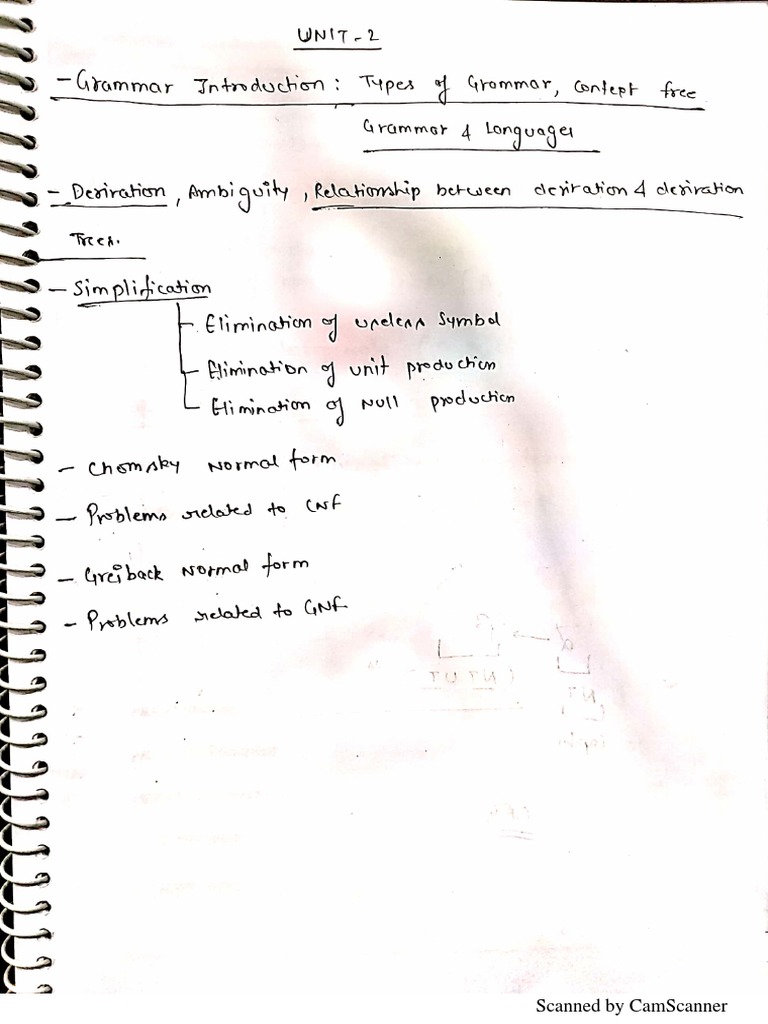 UNIT-2
- Grammar Introduction: Types of Grammar, Contept free
Grammar & Languages
- Derivation, Ambiguity, Relationship between derivation & derivation
Trees.
- Simplification
- Elimination of useless Symbol
- Elimination of unit production
- Elimination of NUll production
- Chomsky Normal form
- Problems related to CNF
- Greiback Normal form
- Problems related to GNF
Scanned by CamScanner